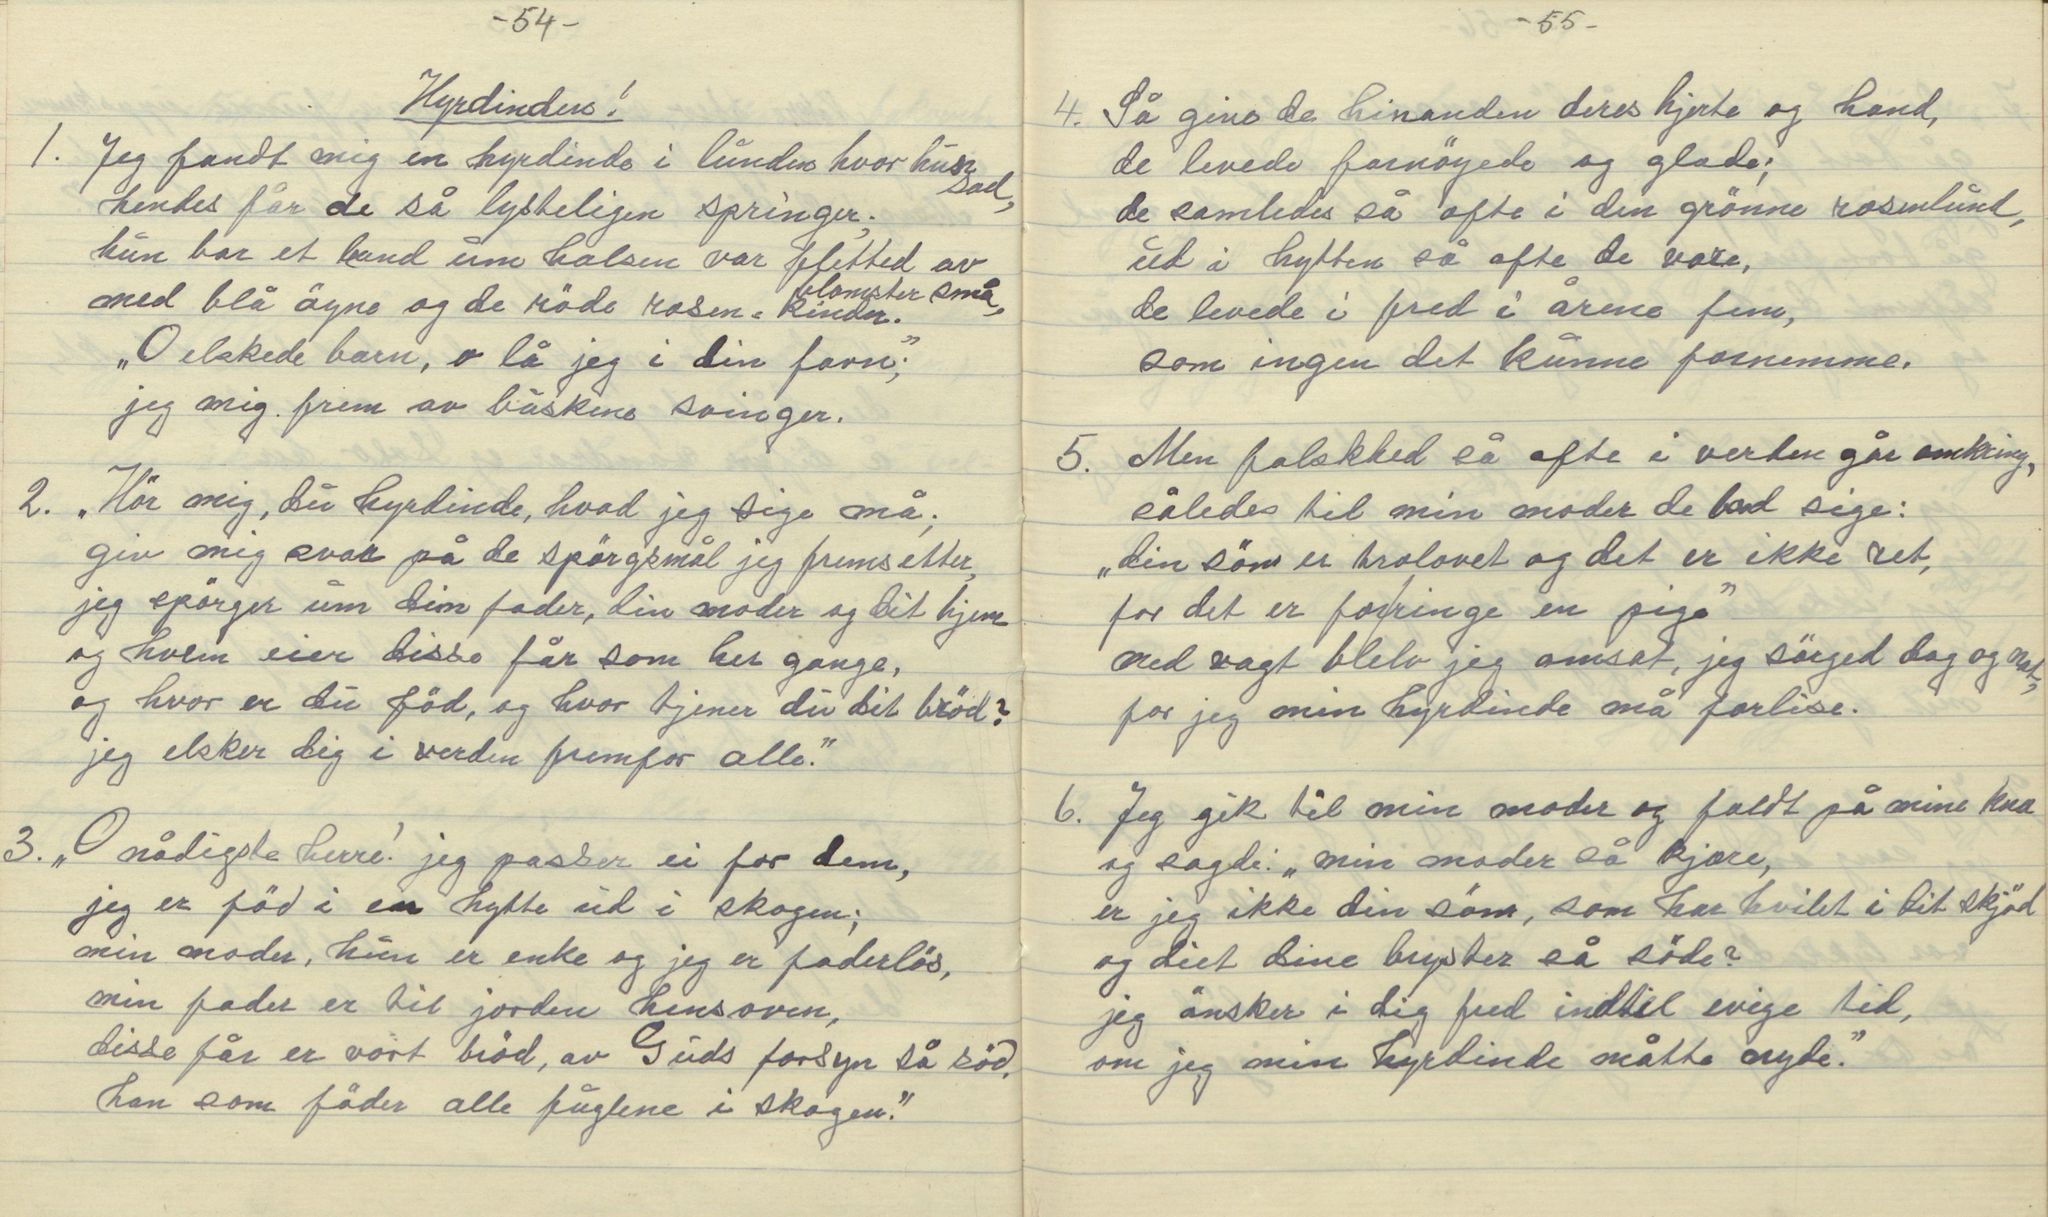 -54-
Hyrdinden!
1. Jeg fandt mig en hyrdinde i lunden hvor hun sad,
hendes får de så lysteligen springer;
hun bar et band um halsen var fletted av blomster små,
med blå öyne og de röde rosen-kinder.
„O elskede barn, o lå jeg i din favn;”
jeg mig frem av buskene svinger.
2. „Hör mig, du hyrdinde, hvad jeg sige må;
giv mig svar på de spörgsmål jeg fremsetter,
jeg spörger um din fader, din moder og dit hjem
og hvem eier disse får som her gange,
og hvor er du föd, og hvor tjener du dit bröd?
jeg elsker dig i verden fremfor alle.”
3. „O nådigste herre! jeg passer ei for dem,
jeg er föd i en hytte ud i skogen;
min moder, hun er enke og jeg er faderlös,
min fader er til jorden hensoven,
disse får er vort bröd, av Guds forsyn så söd,
han som föder alle fuglene i skogen.”
-55-
4. Så give de hinanden deres hjerte og hand,
de levede fornöyede og glade;
de samledes så ofte i den grönne rosenlund,
ud i hytten så ofte de vare,
de levede i fred i årene fem,
som ingen det kunne fornemme.
5. Men falskhed så ofte i verden går omkring,
således til min moder de bad sige:
„din sön er trolovet og det er ikke ret,
for det er for ringe en pige”
med vagt blelv jeg omsat, jeg sörged dag og nat,
for jeg min hyrdinde må forlise.
6. Jeg gik til min moder og faldt på mine knæ
og sagde: „min moder så kjære,
er jeg ikke din sön, som har hvilet i dit skjöd
og diet dine bryster så söde?
jeg önsker i dig fred indtil evige tid,
om jeg min hyrdinde måtte nyde.”